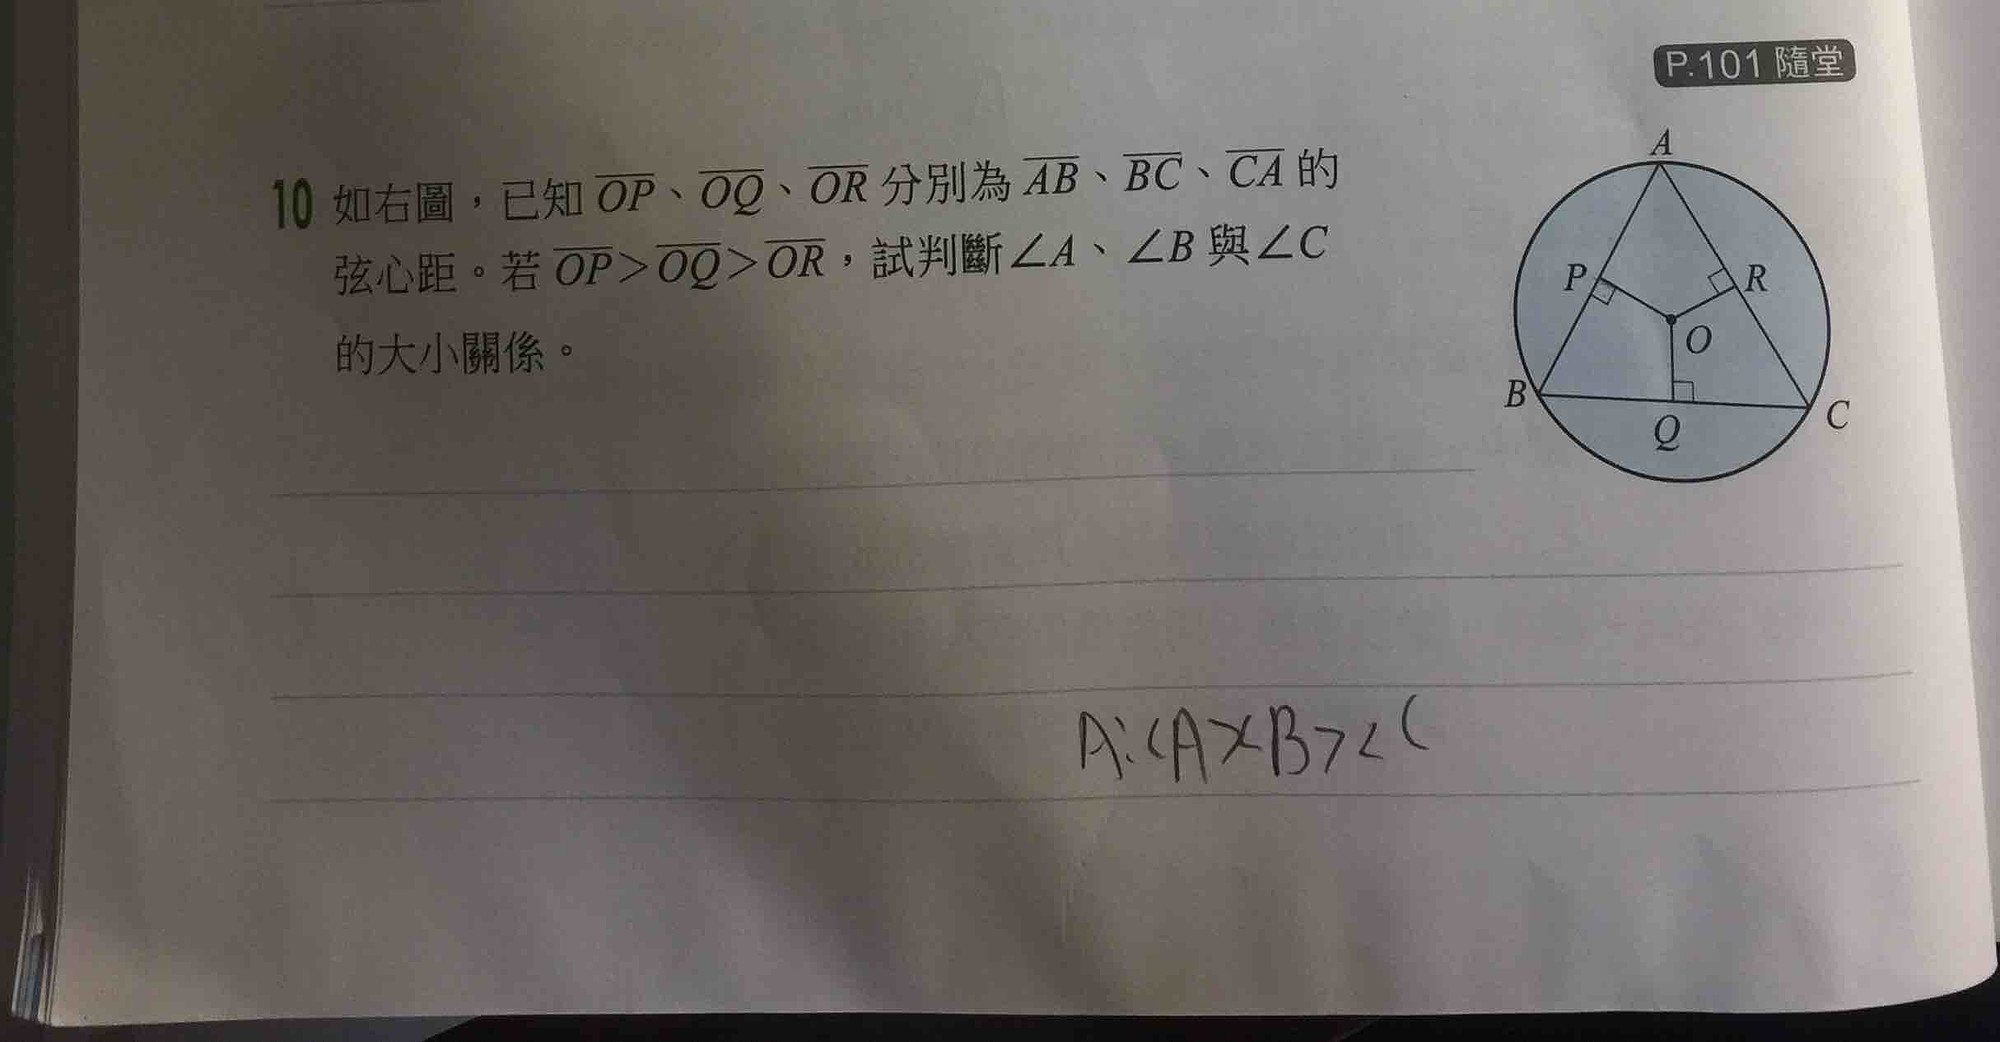 P.101 隨堂
10 如右圖，已知 OP、OQ、OR 分別為 AB、BC、CA 的
弦心距。若 OP＞OQ＞OR，試判斷∠A、∠B 與∠C
的大小關係。
A
P
R
O
B
Q
C
A:<A><B><C